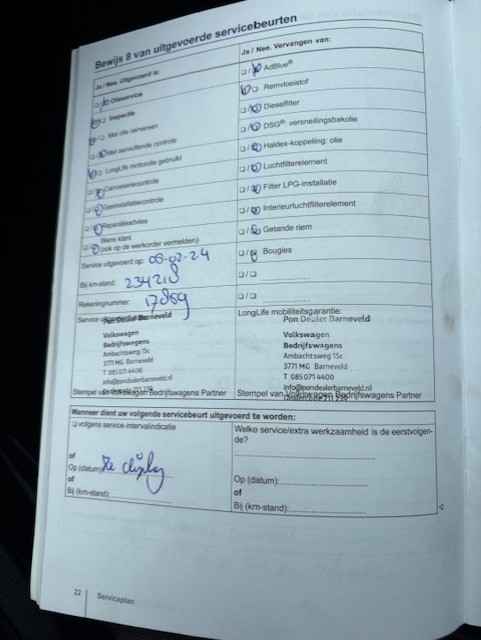 Bewijs 8 van uitgevoerde servicebeurten
Ja / Nee, uitgevoerd is:
Olieservice
Inspectie
Met olie verversen
Met aanvullende controle
LongLife motorolie gebruikt
Carrosseriecontrole
Gasinstallatiecontrole
Reparatieadvies
Wens klant
(ook op de werkorder vermelden)
Service uitgevoerd op: 06-02-24
Bij km-stand: 234218
Rekeningnummer: 17869
Pon Dealer Barneveld
Volkswagen
Bedrijfswagens
Ambachtsweg 15c
3771 MG Barneveld
T 085 071 4400
info@pondealerbarneveld.nl
Stempel van Volkswagen Bedrijfswagens Partner
Ja / Nee. Vervangen van:
AdBlue®
Remvloeistof
Dieselfilter
DSG® versnellingsbakolie
Haldex-koppeling: olie
Luchtfilterelement
Filter LPG-installatie
Interieurluchtfilterelement
Getande riem
Bougies
LongLife mobiliteitsgarantie:
Pon Dealer Barneveld
Volkswagen
Bedrijfswagens
Ambachtsweg 15c
3771 MG Barneveld
T 085 071 4400
info@pondealerbarneveld.nl
Stempel van Volkswagen Bedrijfswagens Partner
Wanneer dient uw volgende servicebeurt uitgevoerd te worden:
volgens service-intervalindicatie
of
Op (datum):
of
Bij (km-stand):
Welke service/extra werkzaamheid is de eerstvolgen-
de?
Op (datum):
of
Bij (km-stand):
22
Serviceplan